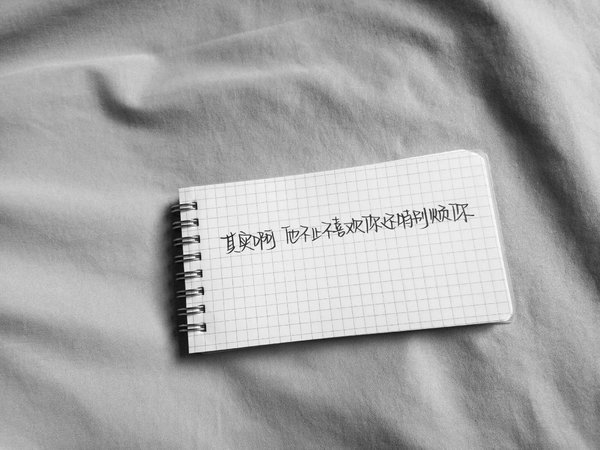 其实啊 他不止不喜欢你还特别烦你